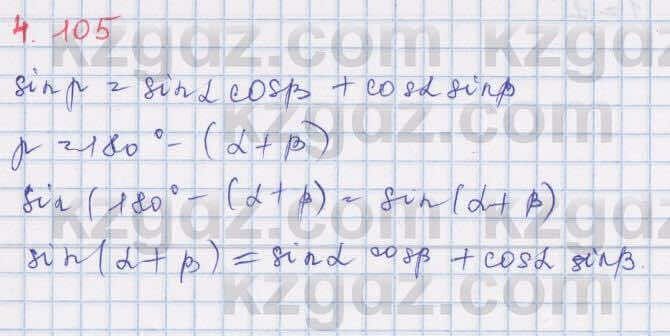 4. 105
sin γ = sin α cos β + cos α sin β
γ = 180° - (α + β)
sin (180° - (α + β) = sin (α + β)
sin (α + β) = sin α cos β + cos α sin β.
kzgdz.com kzgdz.com
kzgdz.com
kzgdz.com kzgdz.com
kzgdz.com